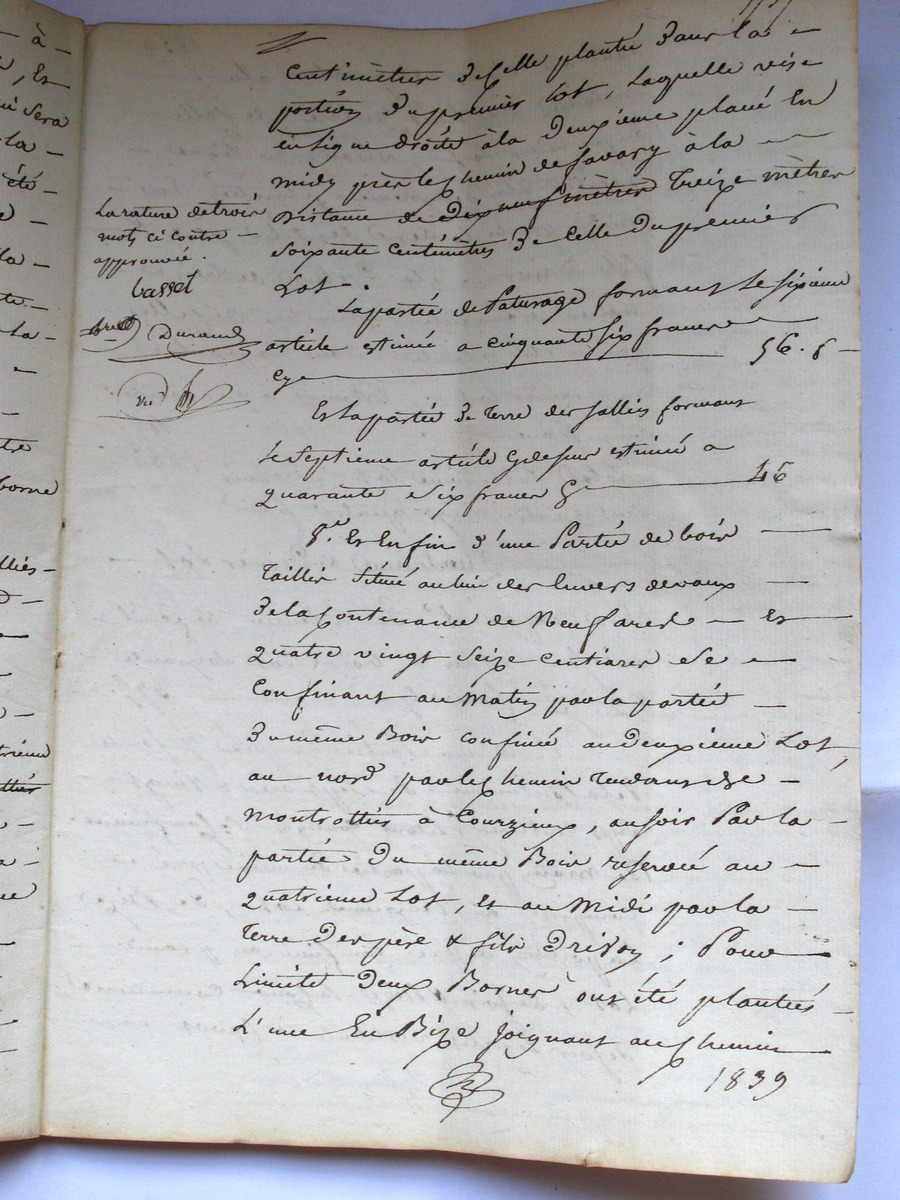 centimètres de celle plantée dans la
portion du premier lot, laquelle vise
en ligne droite à la deuxieme placé En
midy près le chemin de Savary à la
distance de dix neuf mètres Treize mètres
soixante centimètres de celle du premier
Lot.
La rature de trois
mots ci contre
approuvée.
Basset
Durand
La partie de Paturage formant le sixieme
article estimée a cinquante six francs
cy 56. f
Et la partie de terre des Sallies formant
le septieme article cy dessus estimée a
quarante six francs cy 46
8.e Et Enfin d'une Partie de bois
Taillis située au lieu des Envers devaux
de la Contenance de Neuf ares Et
quatre vingt seize centiares se
Confinant au Matin par la partie
du même Bois confinée au deuxieme Lot,
au nord par le chemin tendant de
montrottier à Courzieux, au soir Par la
partie du même Bois reservée au
quatrieme Lot, Et au Midi par la
Terre des père & fils Drivon ; Pour
Limite Deux Bornes ont été plantées
L'une En Bize joignant au chemin
1839